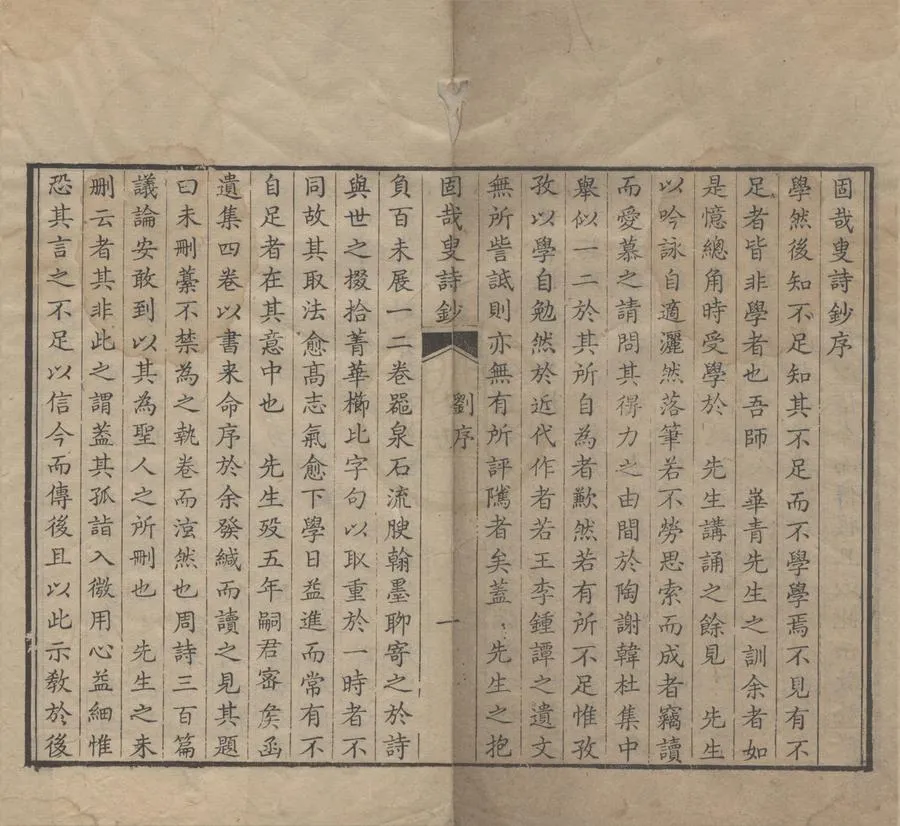 固哉叟詩鈔序
學然後知不足知其不足而不學學焉不見有不
足者皆非學者也吾師　崋青先生之訓余者如
是憶總角時受學於　先生講誦之餘見　先生
以吟詠自適灑然落筆若不勞思索而成者竊讀
而愛慕之請問其得力之由間於陶謝韓杜集中
舉似一二於其所自為者歉然若有所不足惟孜
孜以學自勉然於近代作者若王李鍾譚之遺文
無所訾詆則亦無有所評隲者矣蓋　先生之抱
固哉叟詩鈔　劉序　一
負百未展一二卷嚣泉石流膄翰墨聊寄之於詩
與世之掇拾菁華櫛比字句以取重於一時者不
同故其取法愈髙志氣愈下學日益進而常有不
自足者在其意中也　先生殁五年嗣君宻矦函
遺集四卷以書来命序於余發緘而讀之見其題
曰未刪藁不禁為之執卷而泫然也周詩三百篇
議論安敢到以其為聖人之所刪也　先生之未
刪云者其非此之謂葢其孤詣入微用心益細惟
恐其言之不足以信今而傳後且以此示教於後